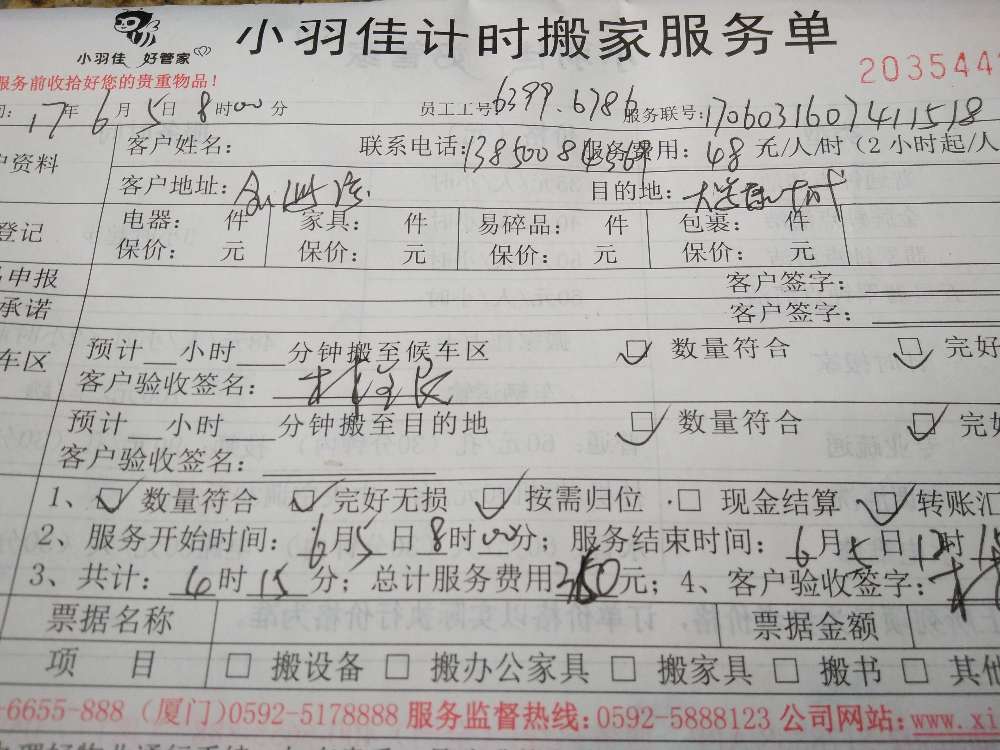 小羽佳 好管家
小羽佳计时搬家服务单
服务前收拾好您的贵重物品！
203544
17年6月5日8时00分 员工工号:6399.6786 服务联号:1706031607411518
户资料 客户姓名: 联系电话:13850084569 服务费用: 48元/人/时（2小时起/人
客户地址: 目的地:
登记 电器: 件 家具: 件 易碎品: 件 包裹: 件
保价: 元 保价: 元 保价: 元 保价: 元
申报 客户签字:
承诺 客户签字:
车区 预计 小时 分钟搬至候车区 ☑ 数量符合 ☑ 完好
客户验收签名:
预计 小时 分钟搬至目的地 ☑ 数量符合 ☑ 完好
客户验收签名:
1、☑ 数量符合 ☑ 完好无损 ☑ 按需归位 □ 现金结算 ☑ 转账汇
2、服务开始时间: 6月5日8时00分; 服务结束时间: 6月5日12时15
3、共计: 4时15分; 总计服务费用 元; 4、客户验收签字:
票据名称 票据金额
项 目 □ 搬设备 □ 搬办公家具 □ 搬家具 □ 搬书 □ 其他
-6655-888 (厦门)0592-5178888 服务监督热线:0592-5888123 公司网站:www.xi